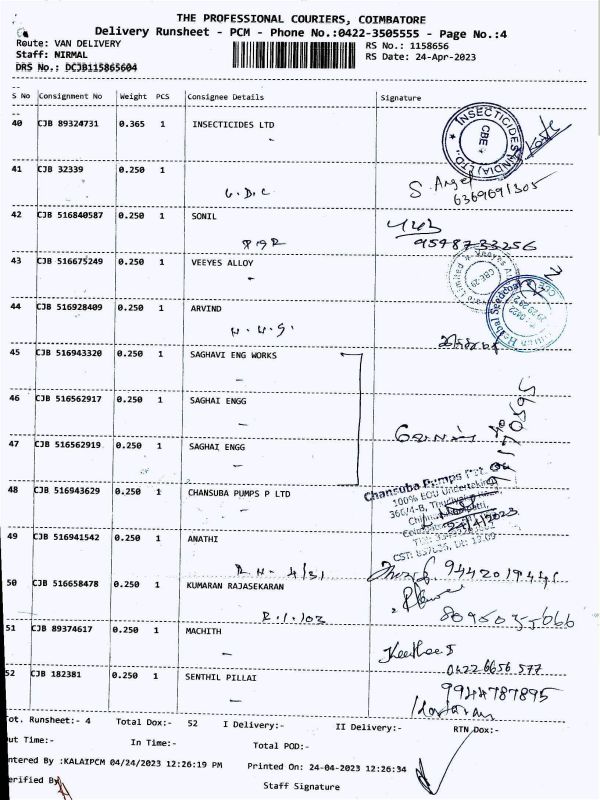 THE PROFESSIONAL COURIERS, COIMBATORE
Delivery Runsheet - PCM - Phone No.:0422-3505555 - Page No.:4
Route: VAN DELIVERY RS No.: 1158656
Staff: NIRMAL RS Date: 24-Apr-2023
DRS No.: DCJB115865604
S No Consignment No Weight PCS Consignee Details Signature
40 CJB 89324731 0.365 1 INSECTICIDES LTD
INSECTICIDES (INDIA) LTD. CBE
41 CJB 32339 0.250 1
U.D.C S. Angel
6369691305
42 CJB 516840587 0.250 1 SONIL
95987 33256
43 CJB 516675249 0.250 1 VEEYES ALLOY
44 CJB 516928409 0.250 1 ARVIND
45 CJB 516943320 0.250 1 SAGHAVI ENG WORKS
46 CJB 516562917 0.250 1 SAGHAI ENGG
47 CJB 516562919 0.250 1 SAGHAI ENGG
48 CJB 516943629 0.250 1 CHANSUBA PUMPS P LTD
Chansuba Pumps Pvt.
100% EOU Undertaking
24/4/2023
49 CJB 516941542 0.250 1 ANATHI
R.N. 4/31 9442019441
50 CJB 516658478 0.250 1 KUMARAN RAJASEKARAN
R.1.103
51 CJB 89374617 0.250 1 MACHITH
0422 6656 577
52 CJB 182381 0.250 1 SENTHIL PILLAI
9944787895
Tot. Runsheet:- 4 Total Dox:- 52 I Delivery:- II Delivery:- RTN Dox:-
Out Time:- In Time:- Total POD:-
ntered By :KALAIPCM 04/24/2023 12:26:19 PM Printed On: 24-04-2023 12:26:34
erified By Staff Signature